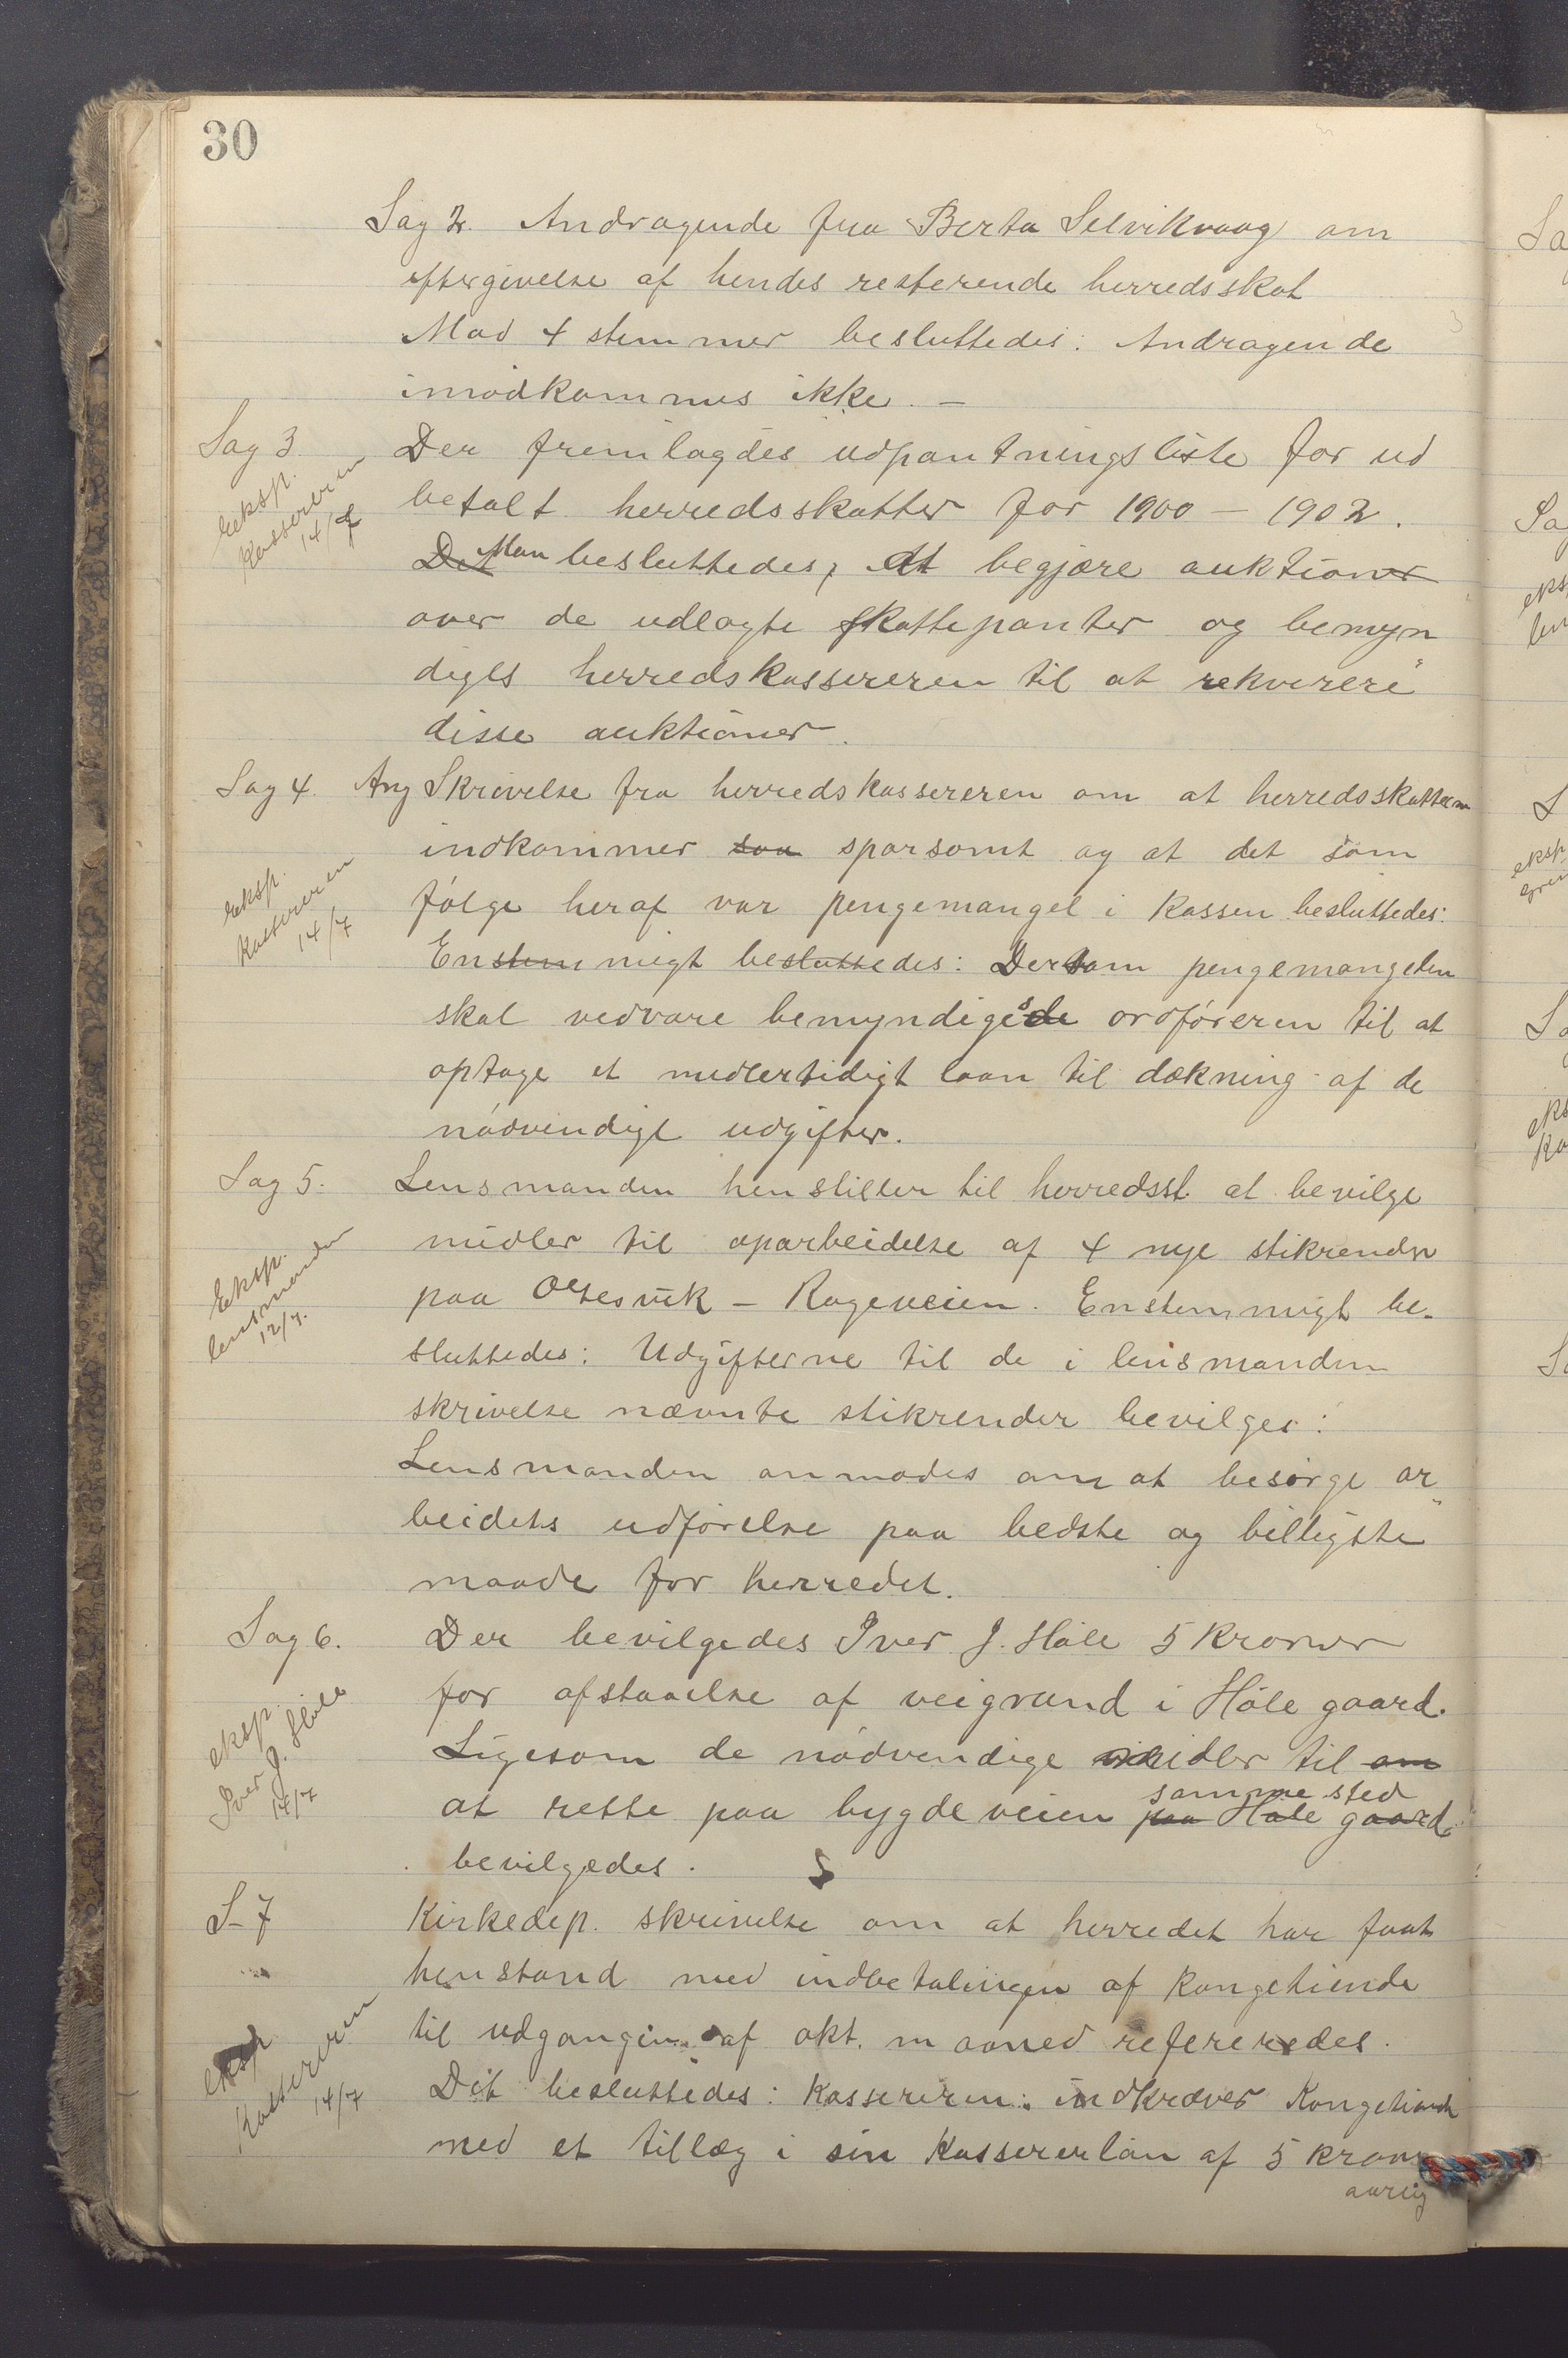 30
Sag 2. Andragende fra Berta Selvikvaag om
eftergivelse af hendes resterende herredsskat
Mod 4 stemmer besluttedes: Andragende
imødkommes ikke. —
Sag 3. Der fremlagdes udpantningsliste for ud
eksp. kassereren 14/7
betalt herredsskatter for 1900 — 1902.
Det Man besluttedes, At begjære auktioner
over de udlagte skattepanter og bemyn
diges herredskassereren til at rekvirere
disse auktioner.
Sag 4. Ang Skrivelse fra herredskassereren om at herredsskatten
indkommer saa sparsomt og at det som
eksp. kassereren 14/7
følge heraf var pengemangel i kassen besluttedes:
Enstemmigt besluttedes: Dersom pengemangelen
skal vedvare bemyndigesde ordføreren til at
optage et midlertidigt laan til dækning af de
nødvendige udgifter.
Sag 5. Lensmanden henstiller til herredsst. at bevilge
midler til oparbeidelse af 4 nye stikrender
Eksp. lensmanden 12/7.
paa Oltesvik — Rageveien. Enstemmigt be-
sluttedes: Udgifterne til de i lensmanden
skrivelse nævnte stikrender bevilges:
Lensmanden anmodes om at besørge ar
beidets udførelse paa bedste og billigste
maade for herredet.
Sag 6. Der bevilgedes Iver J. Høle 5 kroner
for afstaaelse af veigrund i Høle gaard.
eksp. Iver J. Høle 14/7
Ligesom de nødvendige midler til om
samme sted
at rette paa bygdeveien paa Høle gaard
bevilgedes.
S. 7 Kirkedep. skrivelse om at herredet har faat
henstand med indbetalingen af kongetiende
til udgangen af okt. maaned refereredes.
eksp kassereren 14/7
Det besluttedes: Kassereren indkræver Kongetiende
med et tillæg i sin kassererløn af 5 kroner
aarlig